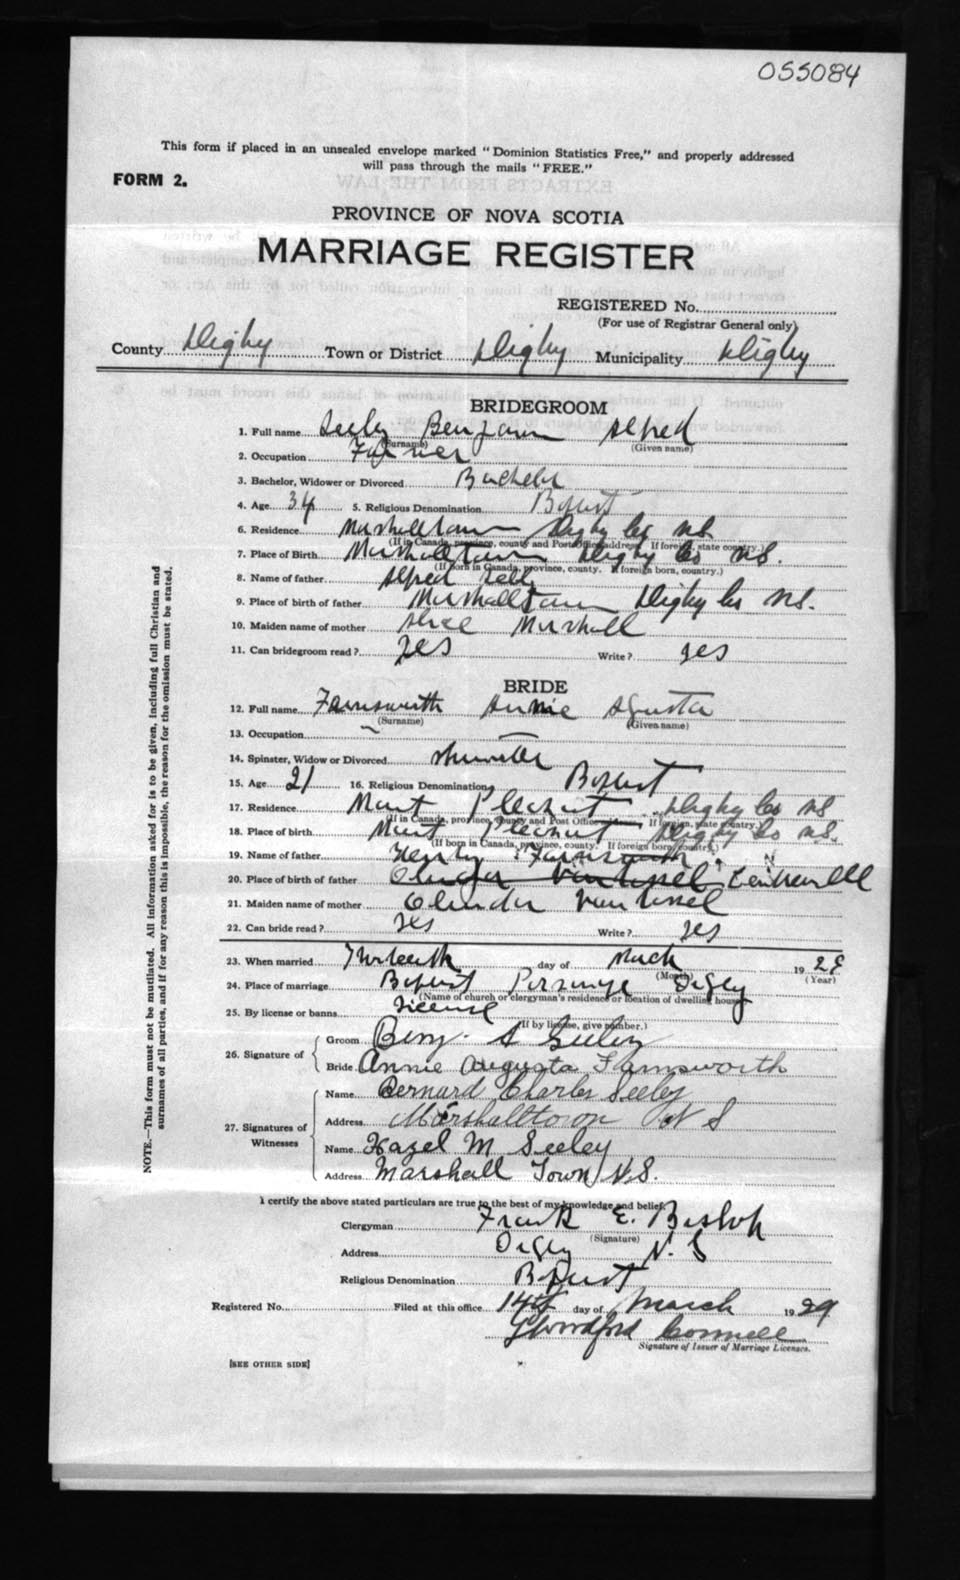 055084
This form if placed in an unsealed envelope marked "Dominion Statistics Free," and properly addressed
will pass through the mails "FREE."
FORM 2.
PROVINCE OF NOVA SCOTIA
MARRIAGE REGISTER
REGISTERED No.
(For use of Registrar General only)
County Digby Town or District Digby Municipality Digby
BRIDEGROOM
1. Full name Seely Benjamin Alfred
(Surname) (Given name)
2. Occupation Farmer
3. Bachelor, Widower or Divorced Bachelor
4. Age 34 5. Religious Denomination Baptist
6. Residence Marshalltown Digby Co NS.
(If in Canada, province, county and Post Office address. If foreign, state country.)
7. Place of Birth Marshalltown Digby Co NS.
(If born in Canada, province, county. If foreign born, country.)
8. Name of father Alfred Seely
9. Place of birth of father Marshalltown Digby Co NS.
10. Maiden name of mother Marshall
11. Can bridegroom read? yes Write? yes
BRIDE
12. Full name Farnsworth Annie Agusta
(Surname) (Given name)
13. Occupation
14. Spinster, Widow or Divorced
15. Age 21 16. Religious Denomination Baptist
17. Residence Mount Pleasant Digby Co NS
(If in Canada, province, county and Post Office If foreign, state country.)
18. Place of birth Mount Pleasant Digby Co NS.
(If born in Canada, province, county. If foreign born, country.)
19. Name of father Henry Farnsworth
20. Place of birth of father Vantassel Centreville
21. Maiden name of mother Vantassel
22. Can bride read? yes Write? yes
23. When married Thirteenth day of March 1929
(Month) (Year)
24. Place of marriage Baptist Parsonage Digby
(Name of church or clergyman's residence or location of dwelling house)
25. By license or banns License
(If by license, give number.)
26. Signature of
Groom Benj. A Seeley
Bride Annie Augusta Farnsworth
27. Signatures of Witnesses
Name Bernard Charles Seeley
Address Marshalltown N S
Name Hazel M Seeley
Address Marshall Town N.S.
I certify the above stated particulars are true to the best of my knowledge and belief.
Clergyman Frank E. Bishop
(Signature)
Address Digby N. S
Religious Denomination Baptist
Registered No. Filed at this office 14th day of March 1929
Signature of Issuer of Marriage Licenses.
[SEE OTHER SIDE]
NOTE.—This form must not be mutilated. All information asked for is to be given, including full Christian and
surnames of all parties, and if for any reason this is impossible, the reason for the omission must be stated.